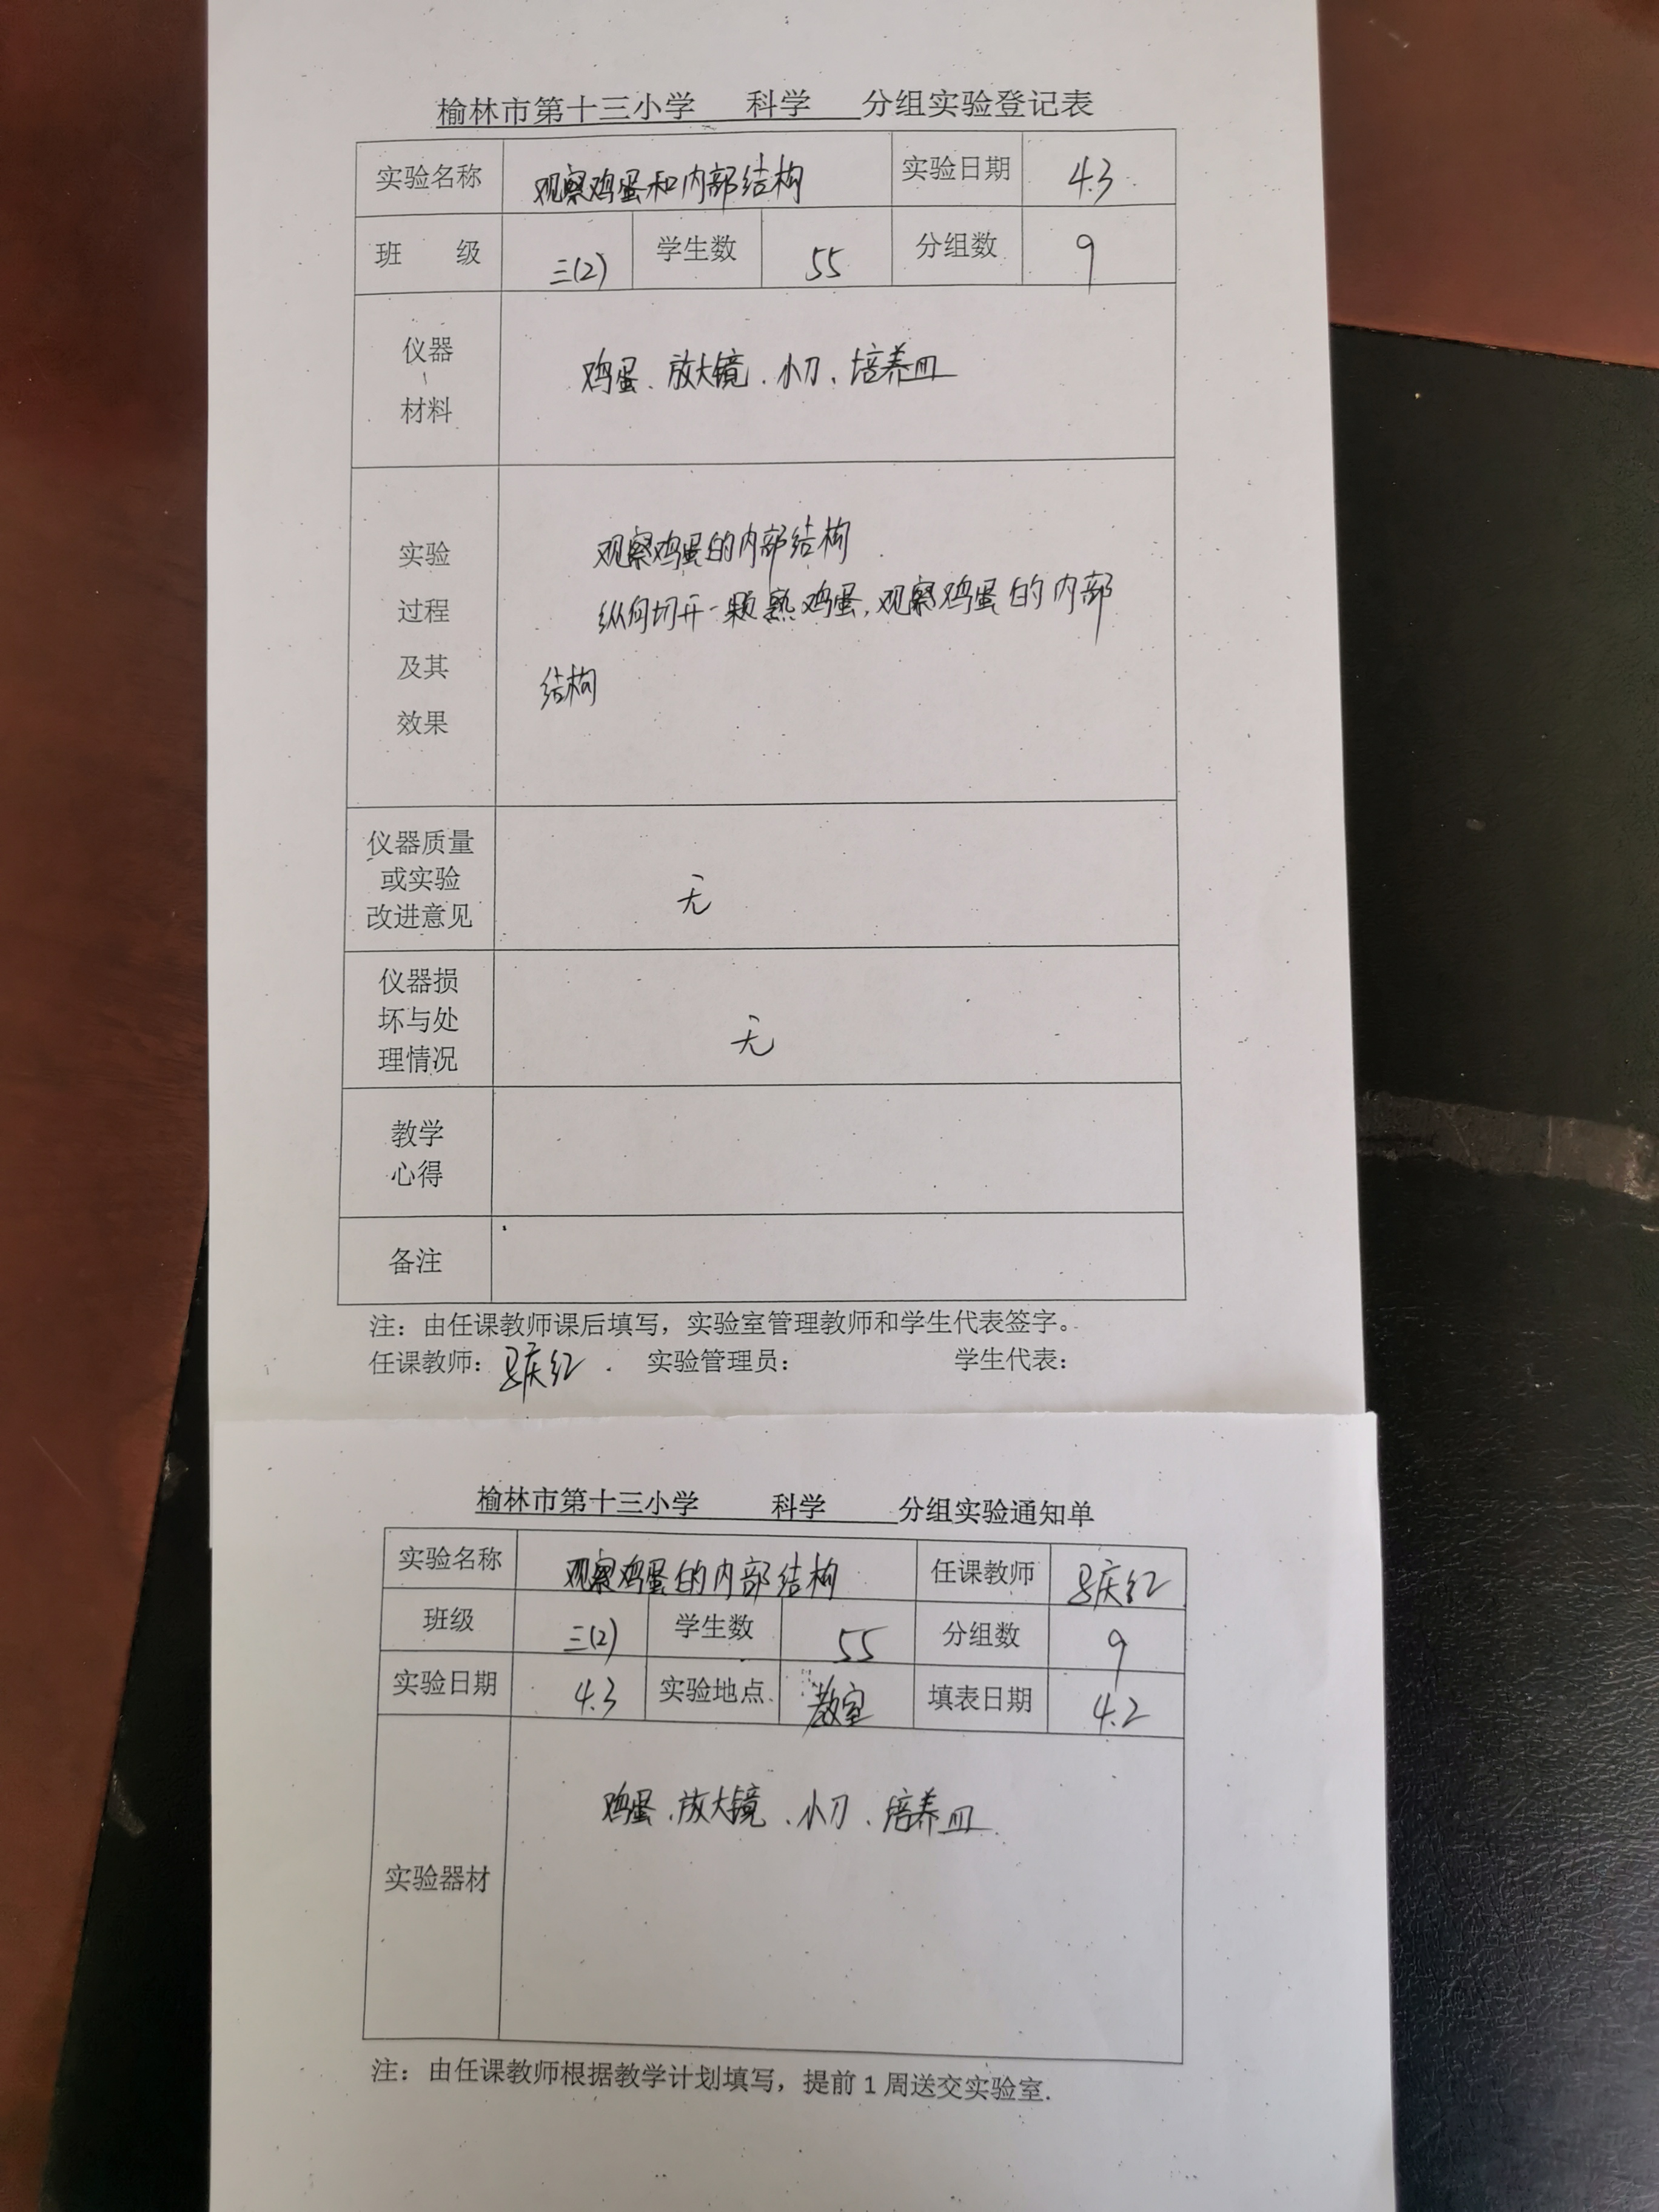 榆林市第十三小学 科学 分组实验登记表
实验名称 观察鸡蛋和内部结构 实验日期 4.3
班 级 三(2) 学生数 55 分组数 9
仪器
、
材料
鸡蛋、放大镜、小刀、培养皿
实验
过程
及其
效果
观察鸡蛋的内部结构
纵向切开一颗熟鸡蛋,观察鸡蛋的内部
结构
仪器质量
或实验
改进意见
无
仪器损
坏与处
理情况
无
教学
心得
备注
注:由任课教师课后填写,实验室管理教师和学生代表签字。
任课教师: 庆红 实验管理员: 学生代表:
榆林市第十三小学 科学 分组实验通知单
实验名称 观察鸡蛋的内部结构 任课教师 庆红
班级 三(2) 学生数 55 分组数 9
实验日期 4.3 实验地点 教室 填表日期 4.2
实验器材
鸡蛋、放大镜、小刀、培养皿
注:由任课教师根据教学计划填写,提前1周送交实验室.